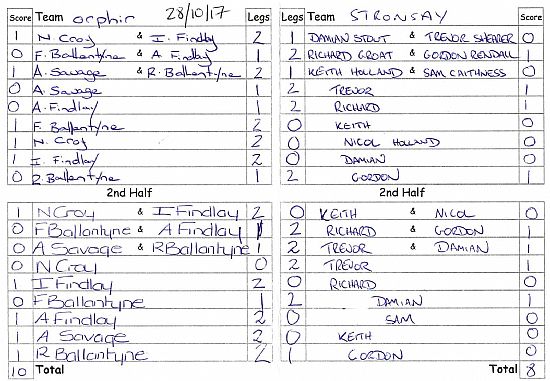 Score Team orphir 28/10/17 Legs Team STRONSAY Score
1 N. Croy & I. Findlay 2 1 DAMIAN STOUT & TREVOR SHEARER 0
0 F. Ballantyne & A Findlay 1 2 RICHARD GROAT & GORDON RENDALL 1
1 A. Savage & R. Ballantyne 2 1 KEITH HOLLAND & SAM CAITHNESS 0
0 A. Savage 1 2 TREVOR 1
0 A. Findlay 1 2 RICHARD 1
1 F. Ballantyne 2 0 KEITH 0
1 N. Croy 2 0 NICOL HOLLAND 0
1 I. Findlay 2 0 DAMIAN 0
0 R. Ballantyne 1 2 GORDON 1
2nd Half 2nd Half
1 N Croy & I Findlay 2 0 KEITH & NICOL 0
0 F Ballantyne & A Findlay 1 2 RICHARD & GORDON 1
0 A Savage & R Ballantyne 1 2 TREVOR & DAMIAN 1
0 N Croy 0 2 TREVOR 1
1 I Findlay 2 0 RICHARD 0
0 F Ballantyne 1 2 DAMIAN 1
1 A Findlay 2 0 SAM 0
1 A Savage 2 0 KEITH 0
1 R Ballantyne 2 1 GORDON 0
10 Total Total 8